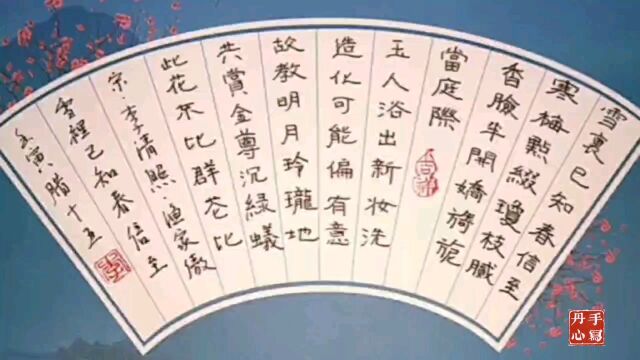 雪裏已知春信至
寒梅點綴瓊枝膩
香臉半開嬌旖旎
當庭際
玉人浴出新妆洗
造化可能偏有意
故教明月玲瓏地
共賞金尊沉綠蟻
此花不比群花比
宋·李清照·漁家傲
雪裡已知春信至
壬寅腊十五
手寫
丹心